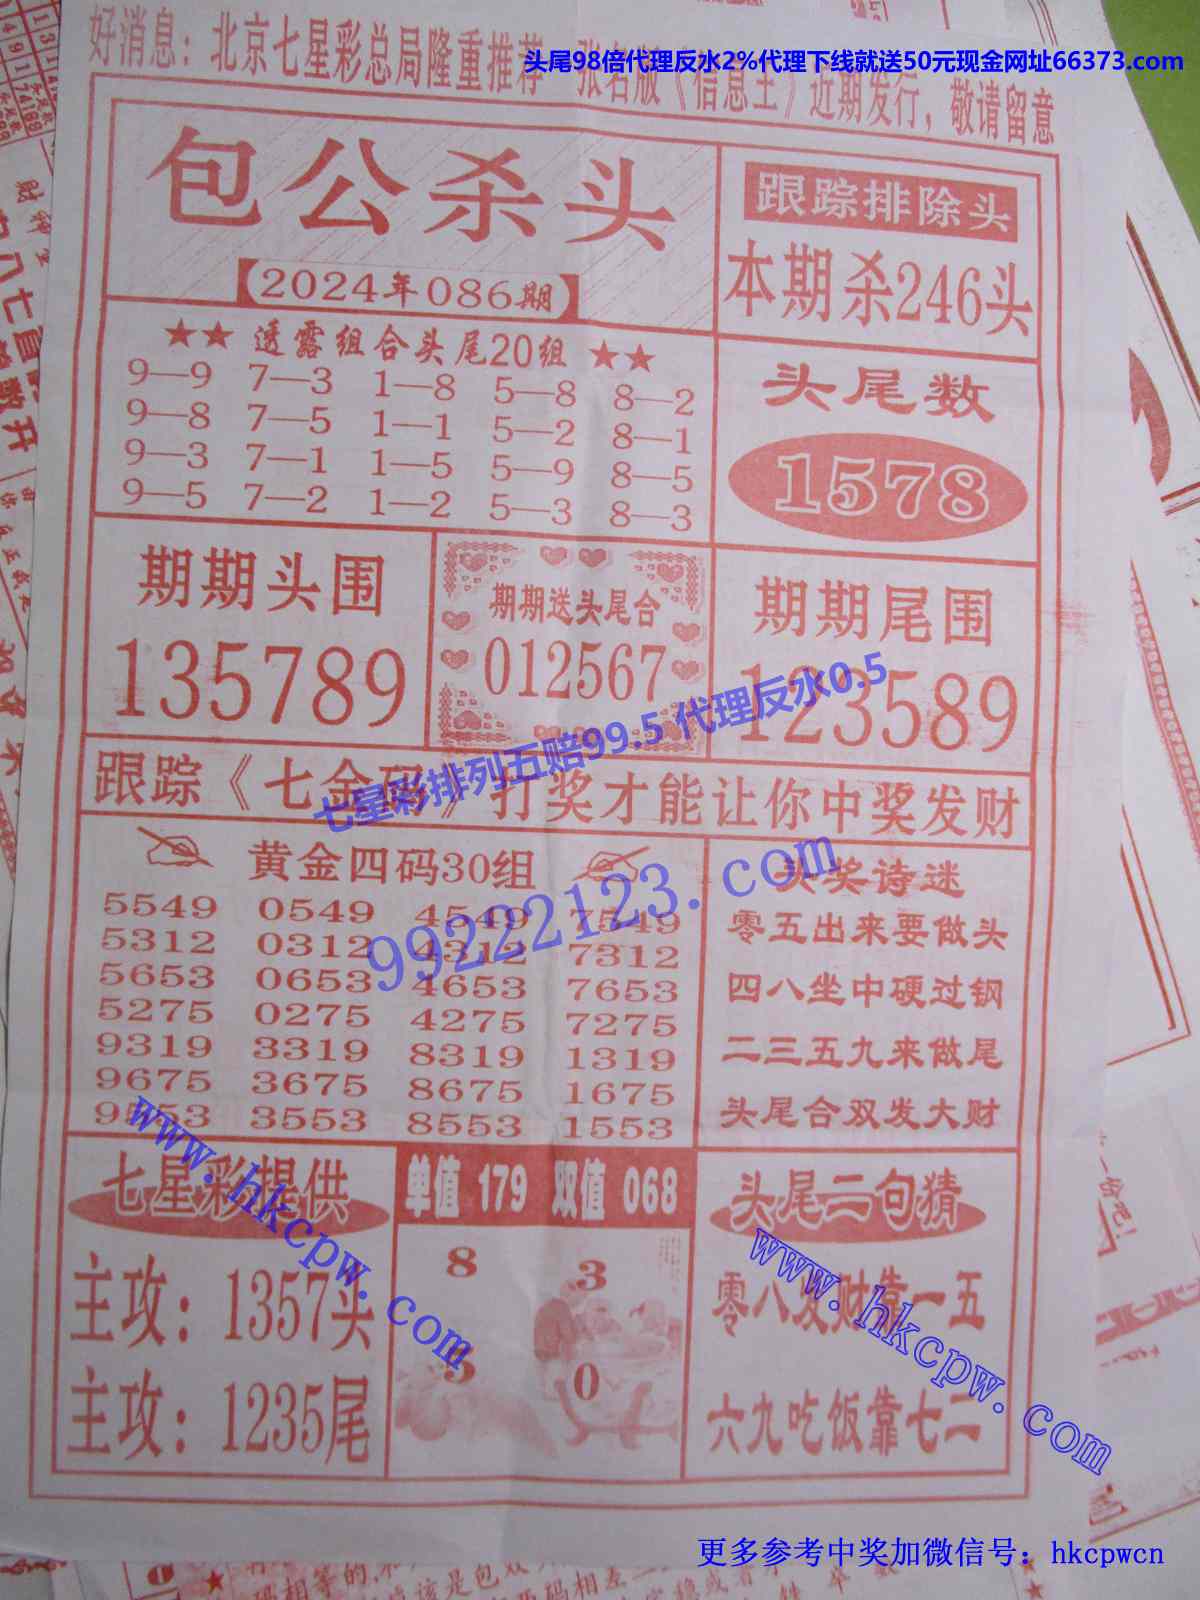 头尾98倍代理反水2%代理下线就送50元现金网址66373.com
好消息：北京七星彩总局隆重推荐 张名版《信息王》近期发行，敬请留意
包公杀头
【2024年086期】
跟踪排除头
本期杀246头
★★ 透露组合头尾20组 ★★
9—9 7—3 1—8 5—8 8—2
9—8 7—5 1—1 5—2 8—1
9—3 7—1 1—5 5—9 8—5
9—5 7—2 1—2 5—3 8—3
头尾数
1578
期期头围
135789
期期送头尾合
012567
期期尾围
123589
七星彩排列五赔99.5 代理反水0.5
跟踪《七金码》打奖才能让你中奖发财
黄金四码30组
5549 0549 4549 7549
5312 0312 4312 7312
5653 0653 4653 7653
5275 0275 4275 7275
9319 3319 8319 1319
9675 3675 8675 1675
9553 3553 8553 1553
99222123.com
头奖诗迷
零五出来要做头
四八坐中硬过钢
二三五九来做尾
头尾合双发大财
七星彩提供
主攻：1357头
主攻：1235尾
www.hkcpw.com
单值 179 双值 068
8 3
5 0
头尾二句猜
零八发财靠一五
六九吃饭靠七二
www.hkcpw.com
更多参考中奖加微信号：hkcpwcn